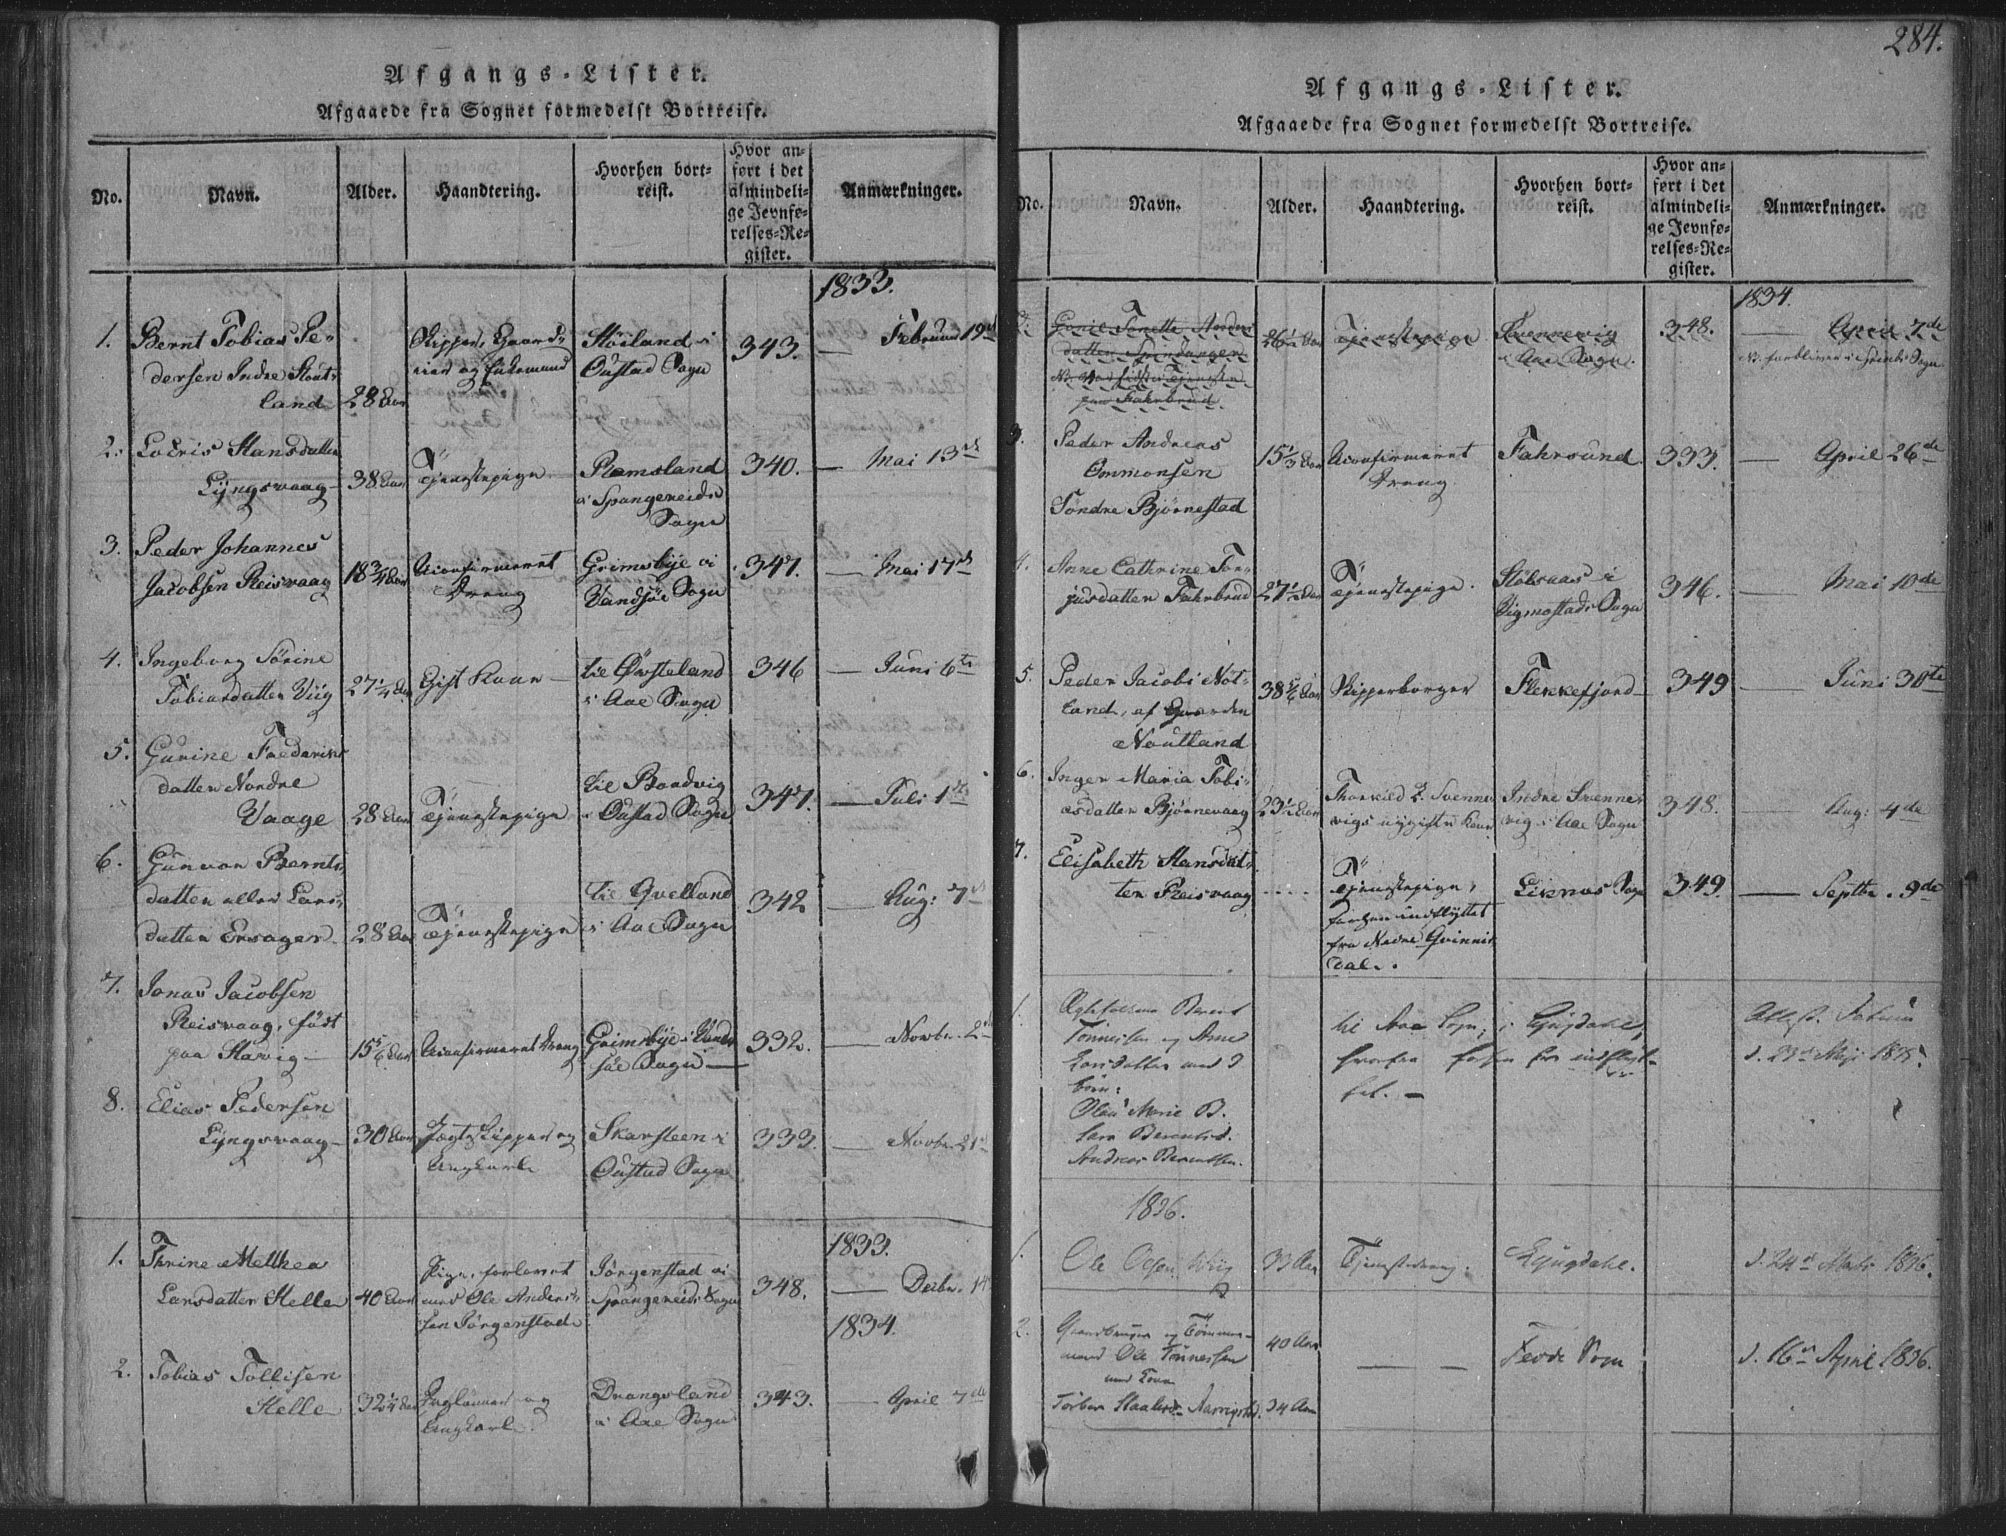 Afgangs-Lister.
Afgaaede fra Sognet formedelst Bortreise.
No.
Navn.
Alder.
Haandtering.
Hvorhen bort-
reist.
Hvor an-
ført i det
almindeli-
ge Jevnfø-
relses-Re-
gister.
Anmærkninger.
1833.
1. Bernt Tobias Pe-
dersen Indre
land 28 Aar
Skipper,
Høiland i
Oustad Sogn
343.
Februar 19
2. Hansdatter
Lyngsvaag 38 Aar
Tjenestepige
Ramsland
i Spangereids
Sogn
340. — Mai 13
3. Peder Johannes
Jacobsen Reisvaag 18 3/4 Aar
Uconfirmeret
Dreng
Grimsbye i
Vandsøe Sogn
347. — Mai 17
4. Ingeborg Sørine
Tobiasdatter Viig 27 1/4 Aar
Gift Kone
til Øvsteland
i Aae Sogn
346 — Juni 6
5. Gurine Frederiks
datter Nordre
Vaage 28 Aar
Tjenestepige
til Bondvig
i Oustad Sogn
347. — Juli 1
6. Gunvor Bernts-
datter eller Lars-
datter 28 Aar
Tjenestepige
til Qvelland
i Aae Sogn
342 — Aug: 7
7. Jonas Jacobsen
Reisvaag, født
paa Havig 15 5/6 Aar
Uconfirmeret Dreng
Grimsbye i Vand-
søe Sogn
332. — Novbr. 2
8. Elias Pedersen
Lyngsvaag 30 Aar
Jægtskipper og
Ungkarl
Skarsteen i
Oustad Sogn
333. — Novbr. 21
1833.
1. Thrine Melthea
Larsdatter Helle 40 Aar
Pige, forlovet
med Ole Anders-
sen Jørgenstad
Jørgenstad i
Spangereids Sogn
348. — Decbr. 14
1834.
2. Tobias Tollisen
Helle 32 1/4 Aar
og
Ungkarl.
Drangsland
i Aae Sogn
343. — April 7de
284.
Afgangs-Lister.
Afgaaede fra Sognet formedelst Bortreise.
No.
Navn.
Alder.
Haandtering.
Hvorhen bort-
reist.
Hvor an-
ført i det
almindeli-
ge Jevnfø-
relses-Re-
gister.
Anmærkninger.
1834.
2. Tonette Anders
datter Spindsanger
paa Fahrbrud
26 1/2 Aar
Tjenestepige
Svennevig
i Aae Sogn.
348. — April 7de
3. Peder Andreas
Ommonsen
Søndre Bjørnestad
15 1/3 Aar
Uconfirmeret
Dreng
Fahrsund 333. — April 26de
4. Anne Cathrine Tor-
jusdatter Fahrbrud 27 1/2 Aar
Tjenestepige.
i
Vigmostads Sogn
346. — Mai 10de
5. Peder Jacobs Not-
land, af Gaarden
Noutland
38 5/6 Aar
Skipperborger
Flekkefjord
349 — Juni 30te
6. Inger Maria Tobi-
asdatter Bjørnevaag 23 1/2 Aar
Thorkild L. Svenne-
vigs nygifte Kone
Indre Svenne-
vig i Aae Sogn
348. — Aug: 4de
7. Elisabeth Hansdat-
ter Reisvaag
Tjenestepige,
forhen indflyttet
fra Nedre Qvinnis-
dal.
Liknes Sogn 349. — Septbr. 9de
1. Ægtefolkene Berent
Tønnesen og Anne
Larsdatter med 3
Børn:
Olene Marie B.
Lara Berentsd.
Andreas Berentsen.
til Aae Sogn, i Lyngdahl,
hvorfra før indflyt-
tet. —
Attest.
d. 23
1836.
1. Ole Olsen Wiig 33 Aar Tjenestedreng. Lyngdahl. d. 24 1836.
2. Gaardbruger og Tømmer-
mand Ole Tønnessen
med Kone
40 Aar
— —
Fede Sogn
d. 16 April 1836.
34 Aar